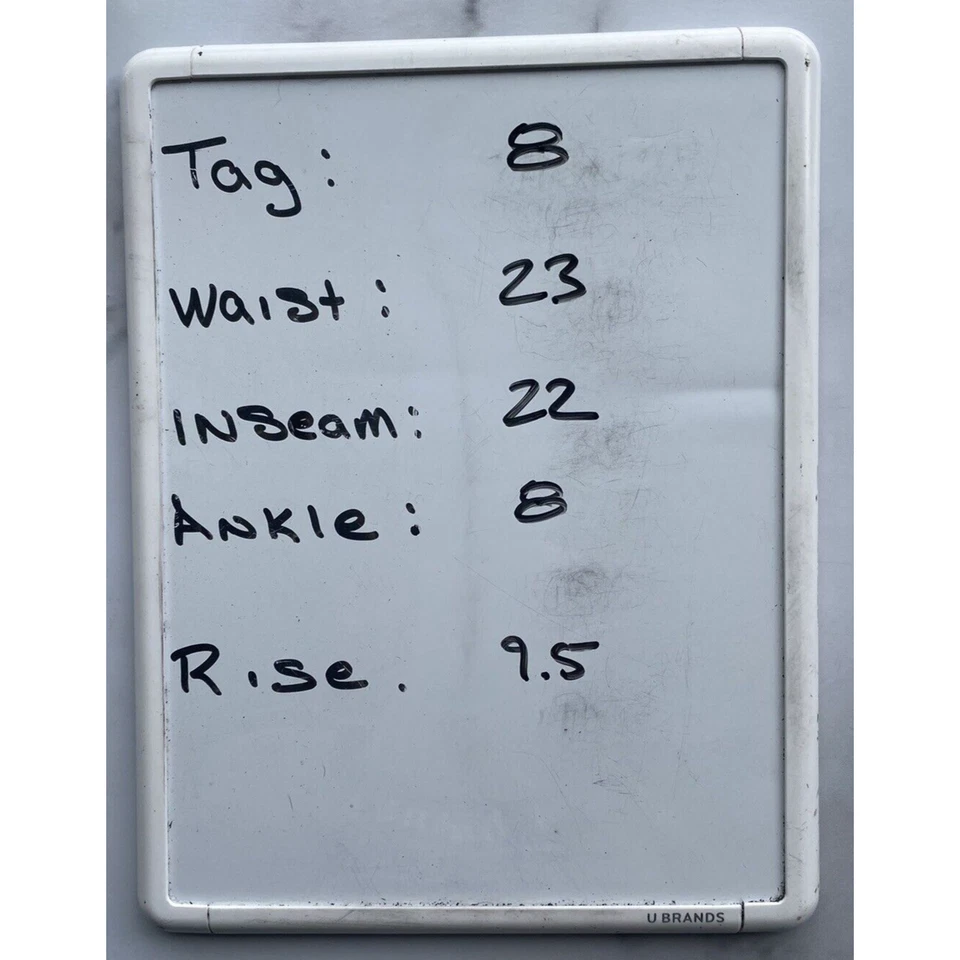 Tag: 8
Waist: 23
Inseam: 22
Ankle: 8
Rise. 9.5
U BRANDS